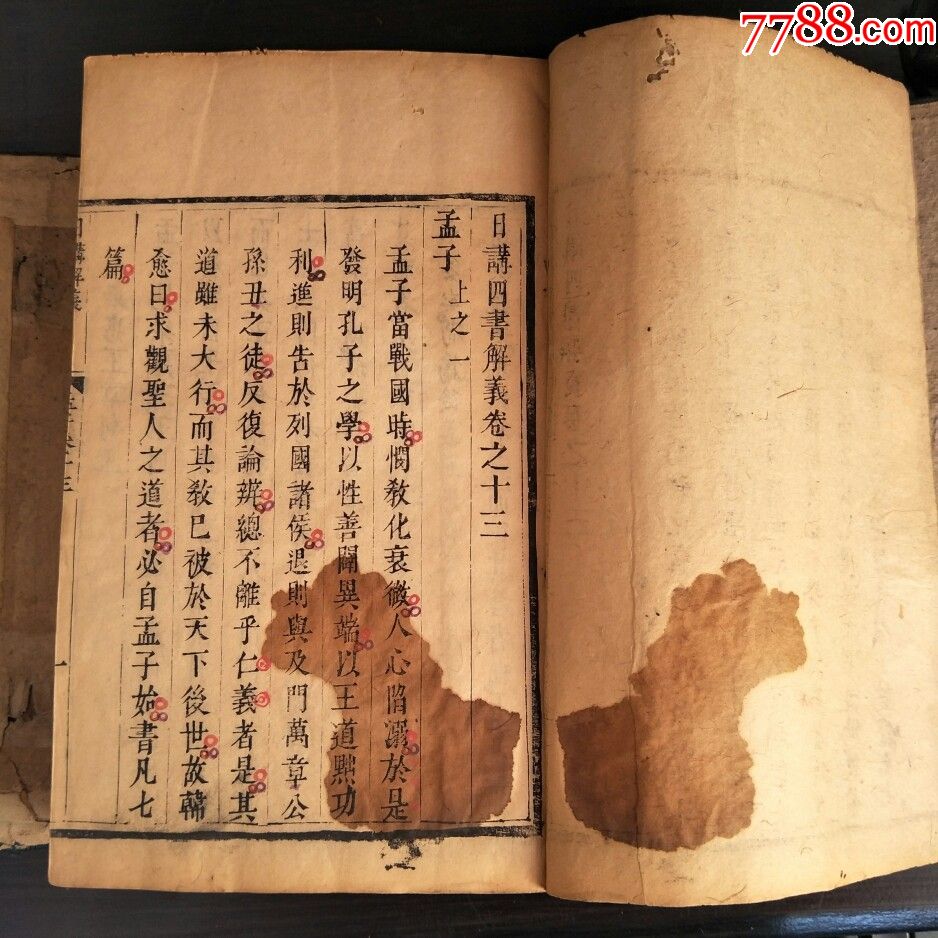 7788.com
日講四書解義卷之十三
孟子 上之一
孟子當戰國時憫敎化衰微人心陷溺於是
發明孔子之學以性善闢異端以王道黜功
利進則告於列國諸侯退則與及門萬章公
孫丑之徒反復論辨總不離乎仁義者是其
道雖未大行而其敎已被於天下後世故韓
愈曰求觀聖人之道者必自孟子始書凡七
篇
日講解義
一